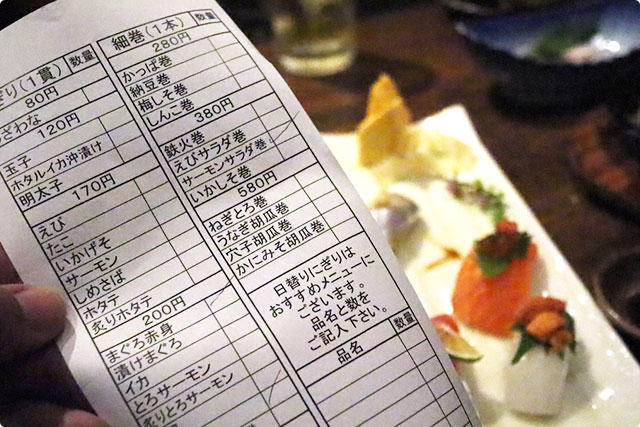 ぎり(1貫) 数量
80円
ざわな
120円
玉子
ホタルイカ沖漬け
明太子
170円
えび
たこ
いかげそ
サーモン
しめさば
ホタテ
炙りホタテ
200円
まぐろ赤身
漬けまぐろ
イカ
とろサーモン
炙りとろサーモン
細巻(1本) 数量
280円
かっぱ巻
納豆巻
梅しそ巻
しんこ巻
380円
鉄火巻
えびサラダ巻
サーモンサラダ巻
いかしそ巻
580円
ねぎとろ巻
うなぎ胡瓜巻
穴子胡瓜巻
かにみそ胡瓜巻
日替りにぎりは
おすすめメニューに
ございます。
品名と数を
ご記入下さい。
品名 数量